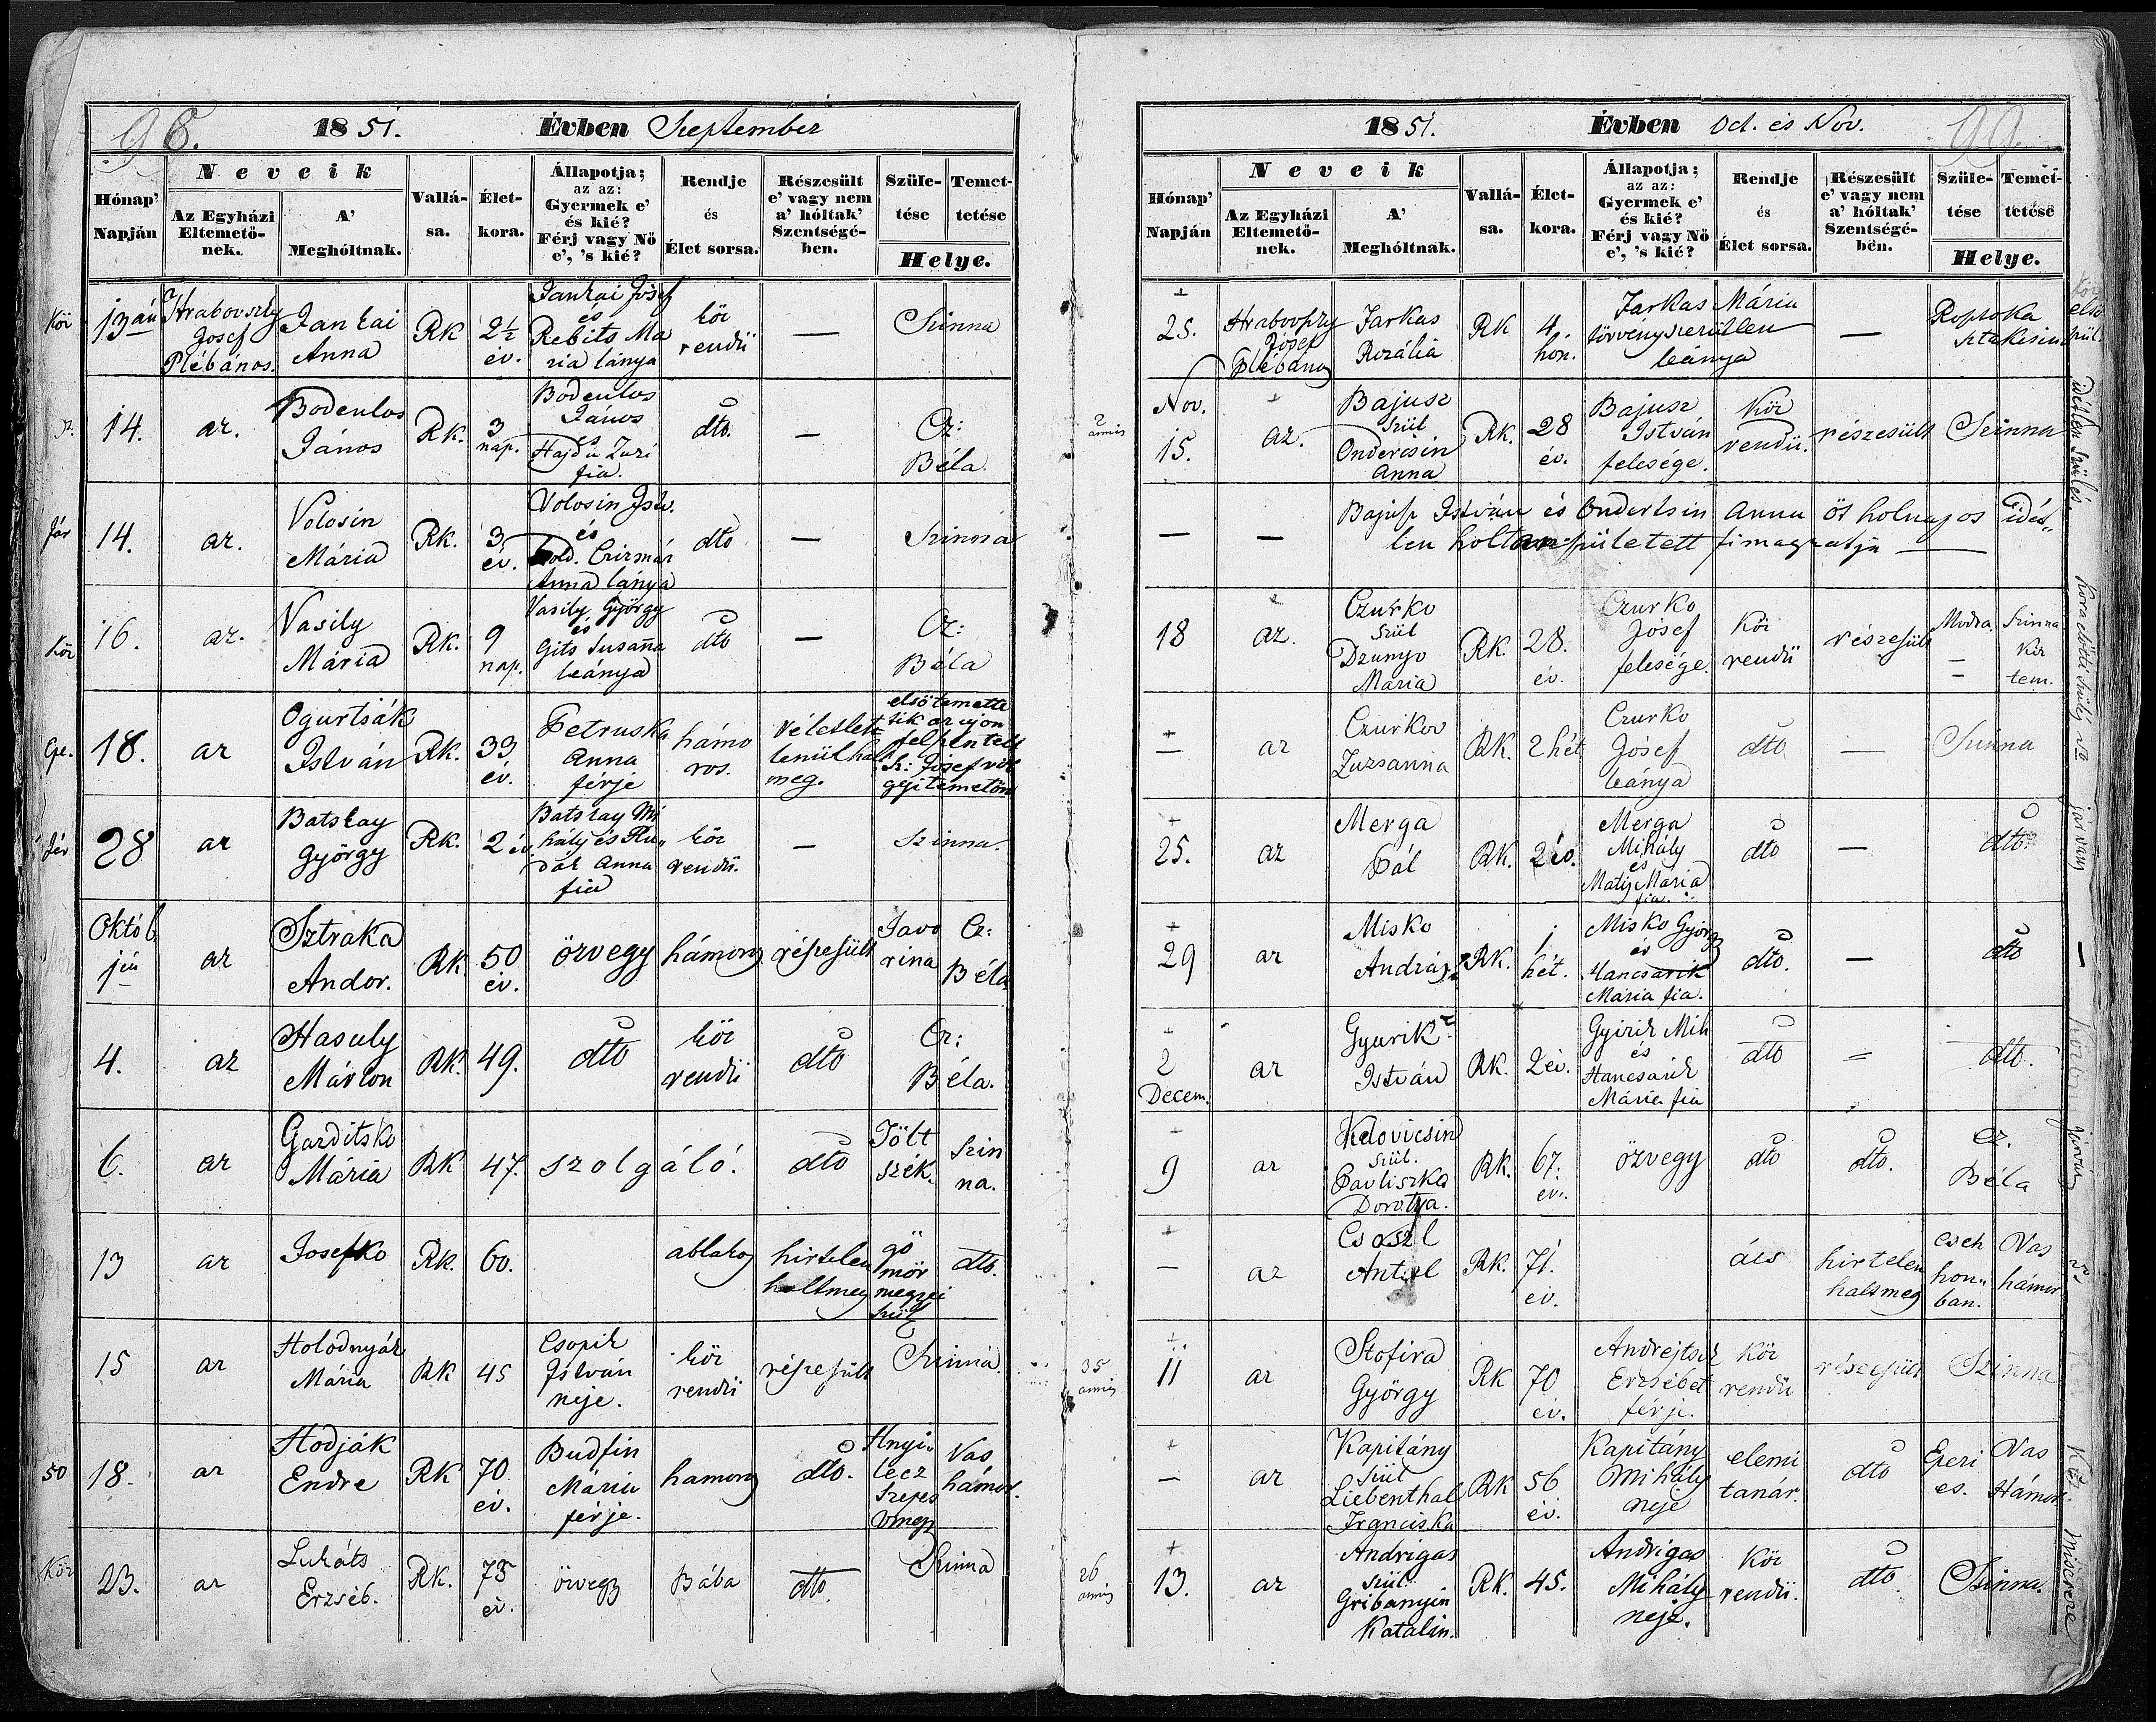 98.
1851. Évben September
Hónap' Napján
Neveik
Az Egyházi Eltemetőnek.
A' Meghóltnak.
Vallása.
Életkora.
Állapotja; az az: Gyermek e' és kié? Férj vagy Nő e', 's kié?
Rendje és Élet sorsa.
Részesült e' vagy nem a' hóltak' Szentségében.
Születése Temettetése
Helye.
13án Hrabovszky Josef Plébános. Jankai Anna RK 2½ év. Jankai Jósef és Rebits Mária lánya köz rendü — Szinna
14. az. Bodenlos János Rk. 3 nap. Bodenlos János és Hajdu Zuzi fia. dto. — Oz: Béla.
14. az. Volosin Mária Rk. 3 év. Volosin Istv. és bold. Csizmár Anna lánya dto — Szinna
16. az. Vasily Mária Rk. 9 nap. Vasily György és Gits Susanna leánya dto — Oz: Béla
18. az Ogurtsák István Rk. 33 év. Petruska Anna férje hámoros. véletlenül halt meg. első temettetik az ujon felszentelt Sz: Josef völgyi temetőn
28 az Batskay György Rk. 2 év Batskay Mihály és Anna fia köz rendü. — Szinna.
Októb. 1én az Sztraka Andor. Rk 50 év. özvegy hámoros részesült Javorina Oz: Béla
4. az Hasuly Márton RK. 49. dto köz rendü dto Oz: Béla.
6. az Garditsko Mária RK 47. szolgáló. dto Töltszék. Szinna.
13 az Josefko Rk. 60. ablakos hirtelen halt meg gömör megyei szül. dto.
15 az Holodnyák Mária RK 45 Csopik István neje. köz rendü részesült Szinna
18. az Hodják Endre RK 70 év. Budfin Mária férje. hamoros dto. Hnyilecz Szepes Vmegy Vas hámor.
23. az Lukáts Erzséb. Rk. 75 év. özvegy Bába dto. Szinna
99.
1851. Évben Oct. és Nov.
Hónap' Napján
Neveik
Az Egyházi Eltemetőnek.
A' Meghóltnak.
Vallása.
Életkora.
Állapotja; az az: Gyermek e' és kié? Férj vagy Nő e', 's kié?
Rendje és Élet sorsa.
Részesült e' vagy nem a' hóltak' Szentségében.
Születése Temettetése
Helye.
25. Hrabovszky Jósef Plébános Farkas Rozália RK 4. hón. Farkas Mária törvényszerütlen leánya — Sztakcsin
Nov. 15. az. Bajusz szül Ondercsin Anna Rk. 28 év. Bajusz István felesége. Köz rendü. részesült Szinna
— — Bajusz István és Ondertsin Anna öt holnapos idétlen holtan született fimagzatja —
18 az. Czurko szül Dzunyo Mária RK 28. év. Czurko Jósef felesége. Köz rendü részesült Modra. Szinna Köz tem.
— az Czurkov Zuzsanna RK. 2 hét Czurko Jósef leánya dto — Szinna
25. az Merga Pál RK. 2 év. Merga Mihály és Matij Mária fia. dto — dto.
29 az Misko András RK. 1 hét. Misko György és Hancsarik Mária fia. dto. — dto
2 Decem. az Gyurik István RK. 2 év. Gyirik Mih és Hancsarik Mária fia dto — dto.
9 az Kdovicsin szül. Pavliszka Dorotya. Rk. 67. év. özvegy dto dto. Oz. Béla
— az Csoszl Antal RK. 71. év. ács hirtelen halt meg csehhonban. Vas hámor
11 az Stofira György RK 70 év. Andrejtsik Erzsébet férje. köz rendü részesült Szinna
— az Kapitány szül Liebenthal Franciska RK 56 év. Kapitány Mihály neje elemi tanár. dto Eperies. Vas Hámor
13. az Andrigas szül. Gribanyin Katalin. RK. 45. Andrigas Mihály neje. Köz rendü. dto. Szinna.